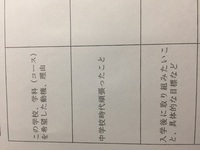 この学校、学科（コース）
を希望した動機、理由
中学校時代頑張ったこと
入学後に取り組みたいこ
と、具体的な目標など